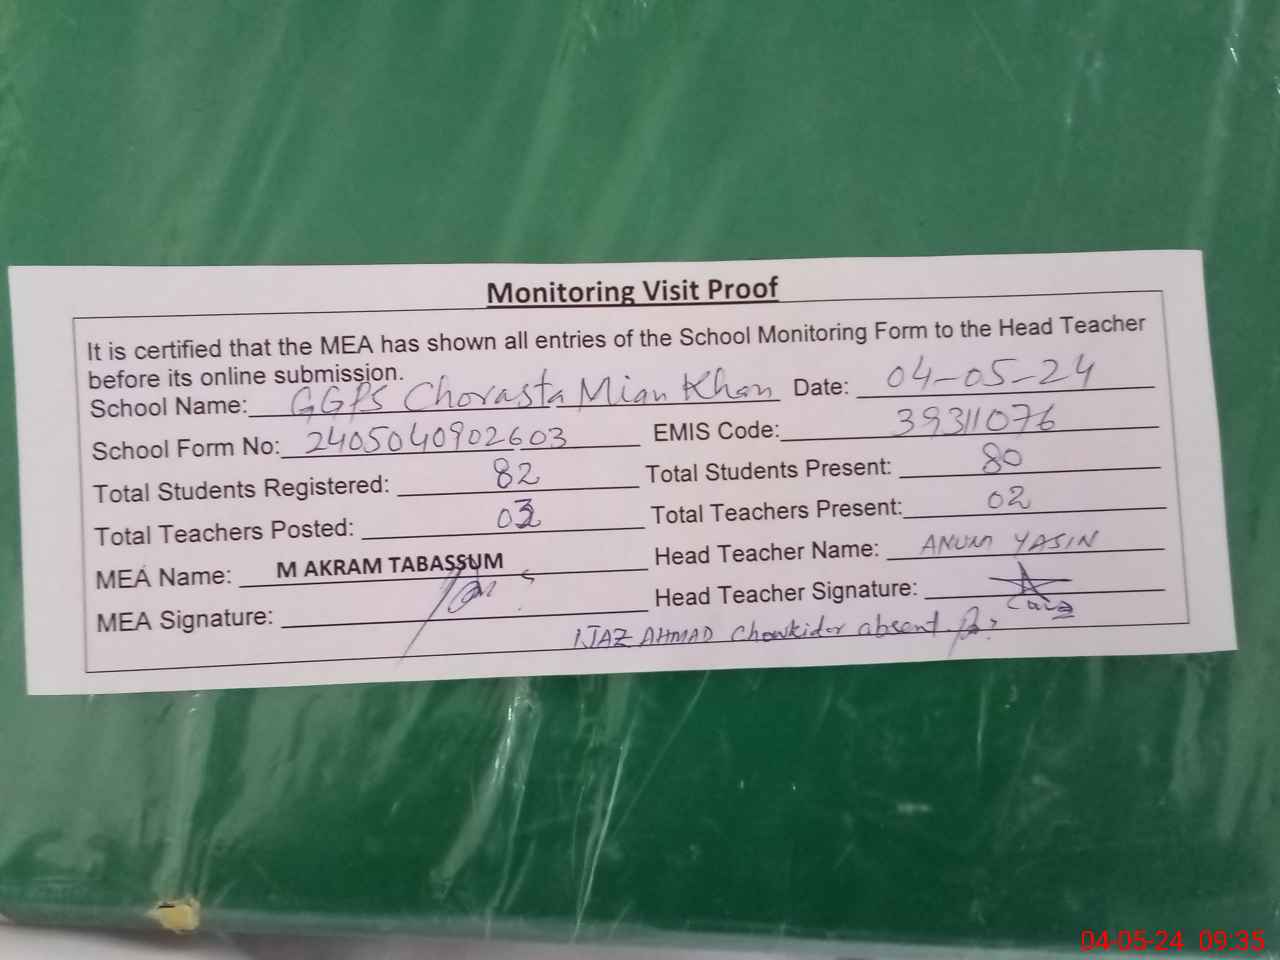 Monitoring Visit Proof
It is certified that the MEA has shown all entries of the School Monitoring Form to the Head Teacher
before its online submission.
School Name: GGPS Chorasta Mian Khan Date: 04-05-24
School Form No: 2405040902603 EMIS Code: 39311076
Total Students Registered: 82 Total Students Present: 80
Total Teachers Posted: 03 Total Teachers Present: 02
MEA Name: M AKRAM TABASSUM Head Teacher Name: ANUM YASIN
MEA Signature: Head Teacher Signature:
IJAZ AHMAD Chowkidar absent
04-05-24 09:35